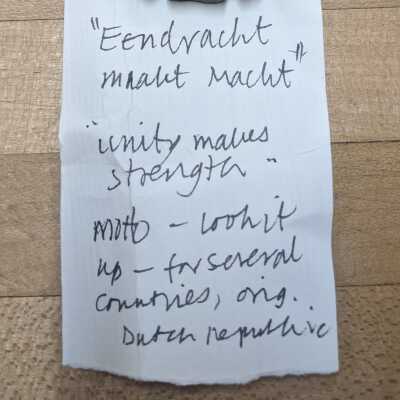 "Eendracht
maakt Macht"
"unity makes
strength"
motto - look it
up - for several
countries, orig.
Dutch republic